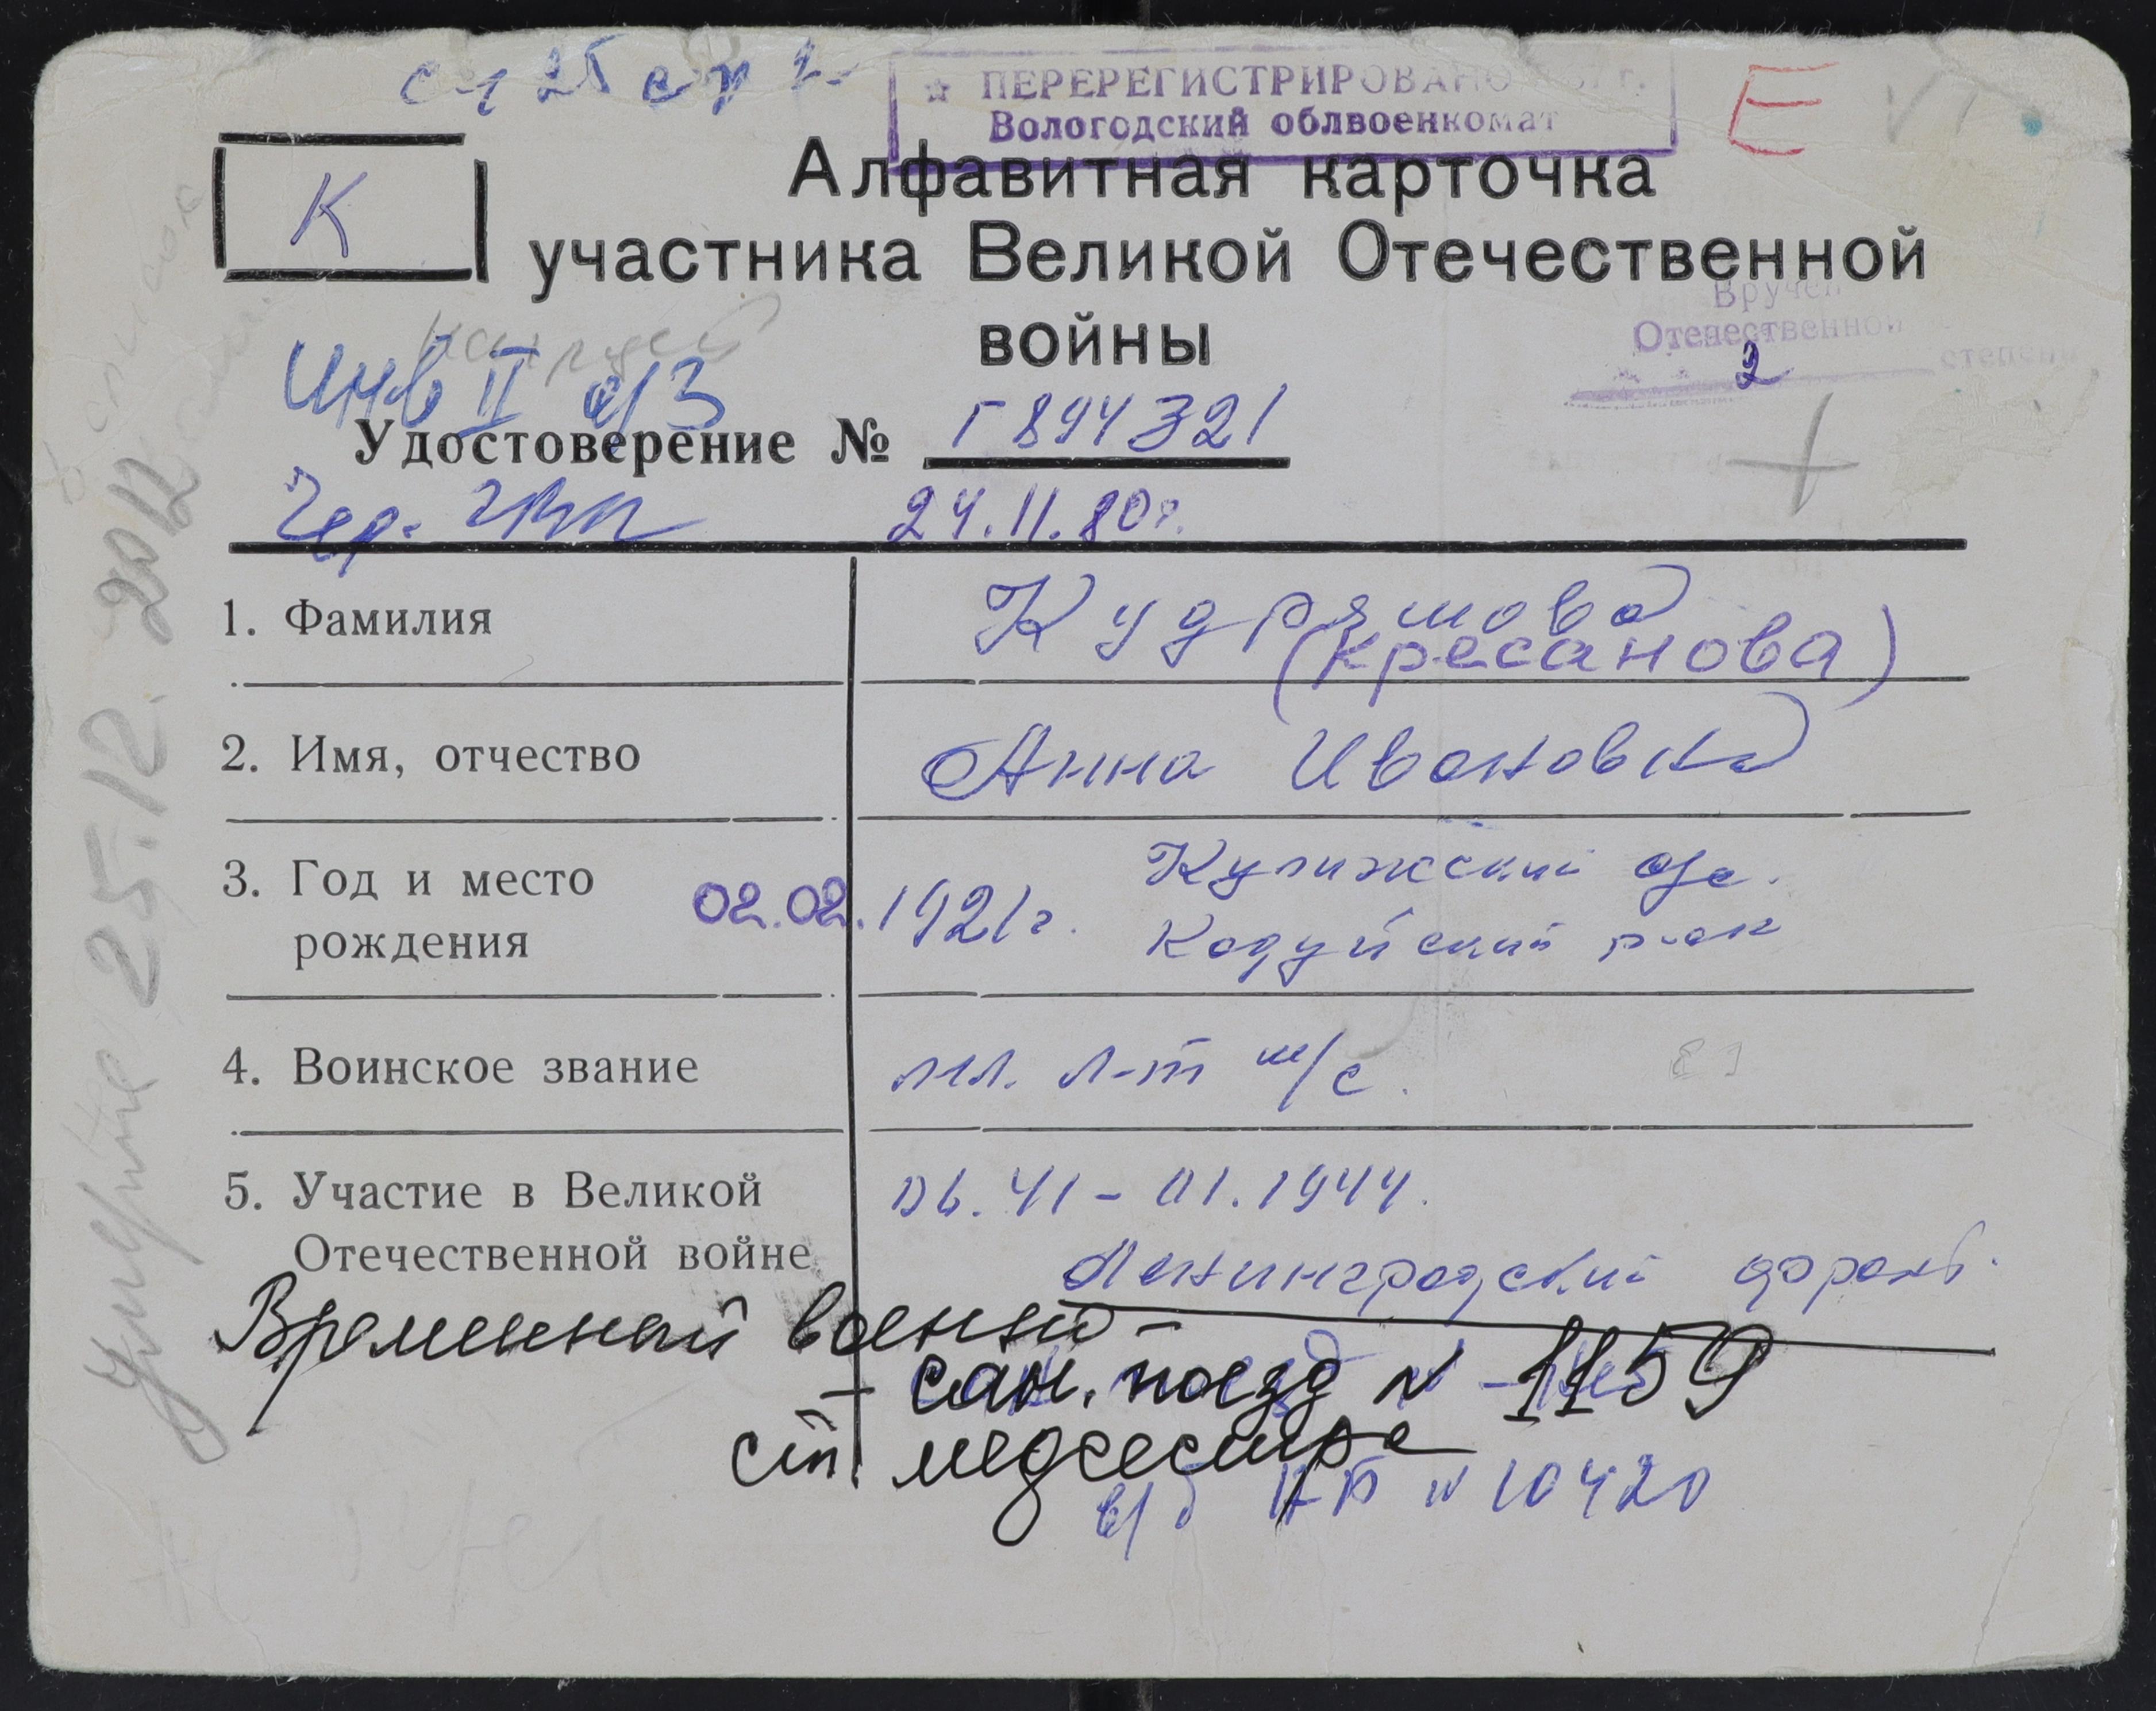 ст 25 стр 2
☆ ПЕРЕРЕГИСТРИРОВАНО г.
Вологодский облвоенкомат
Е
К
Алфавитная карточка
участника Великой Отечественной
войны
Вручен
Отечественной
2 степени
Инв II о/з
Удостоверение № Г 894321
Чер. 24.11.80г.
1. Фамилия Кудряшова
(Кресанова)
2. Имя, отчество Анна Ивановна
3. Год и место рождения 02.02.1921г. Кулижский
Кадуйский р-он
4. Воинское звание мл. л-т м/с.
5. Участие в Великой Отечественной войне 06.41 - 01.1944.
Ленинградский фронт.
Временный военно-
- сан. поезд N 1159
ст. медсестра
в/б НБ N 10420
Умерла 25.12.2012